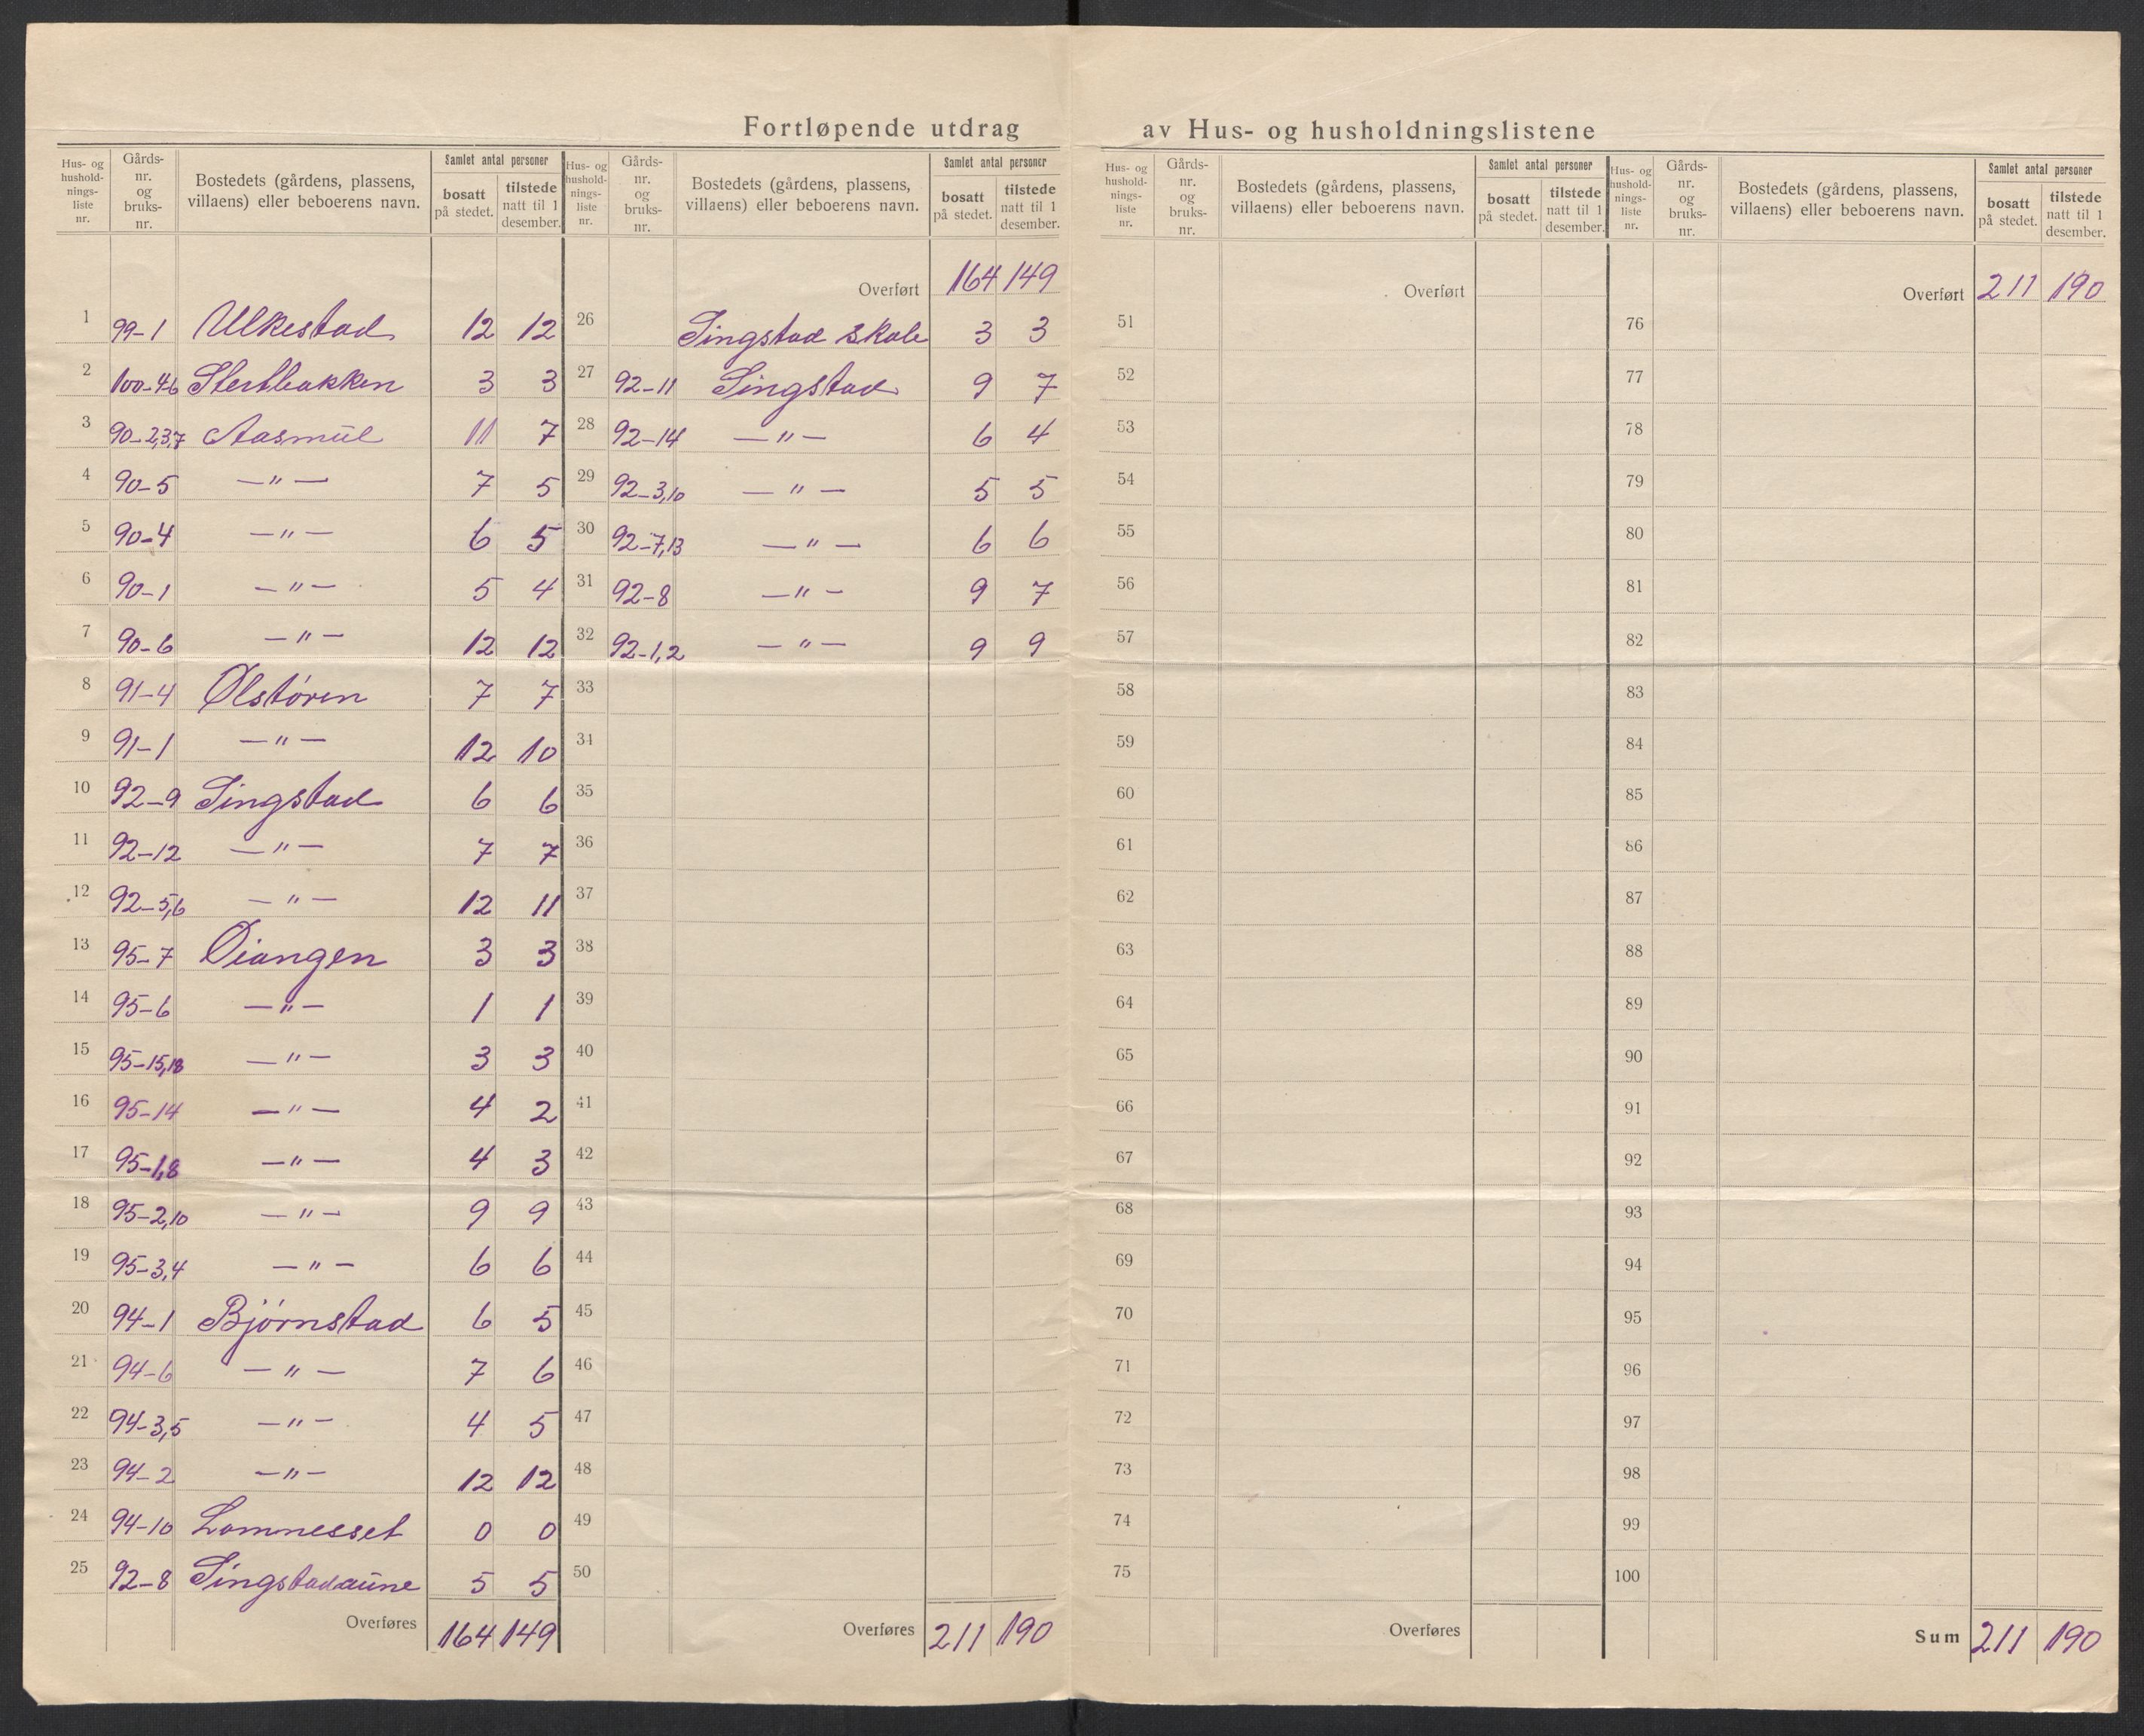 Fortløpende utdrag av Hus- og husholdningslistene
Hus- og husholdningsliste nr. | Gårds-nr. og bruks-nr. | Bostedets (gårdens, plassens, villaens) eller beboerens navn. | Samlet antal personer: bosatt på stedet. | tilstede natt til 1 desember.
1 99-1 Ulkestad 12 12
2 100-4-6 Stertbakken 3 3
3 90-2,3,7 Aasmul 11 7
4 90-5 —"— 7 5
5 90-4 —"— 6 5
6 90-1 —"— 5 4
7 90-6 —"— 12 12
8 91-4 Ølstøren 7 7
9 91-1 —"— 12 10
10 92-9 Singstad 6 6
11 92-12 —"— 7 7
12 92-5,6 —"— 12 11
13 95-7 Øiangen 3 3
14 95-6 —"— 1 1
15 95-15,18 —"— 3 3
16 95-14 —"— 4 2
17 95-1,8 —"— 4 3
18 95-2,10 —"— 9 9
19 95-3,4 —"— 6 6
20 94-1 Bjørnstad 6 5
21 94-6 —"— 7 6
22 94-3,5 —"— 4 5
23 94-2 —"— 12 12
24 94-10 Lomnesset 0 0
25 92-8 Singstadaune 5 5
Overføres 164 149
Hus- og husholdningsliste nr. | Gårds-nr. og bruks-nr. | Bostedets (gårdens, plassens, villaens) eller beboerens navn. | Samlet antal personer: bosatt på stedet. | tilstede natt til 1 desember.
Overført 164 149
26 Singstad skole 3 3
27 92-11 Singstad 9 7
28 92-14 —"— 6 4
29 92-3,10 —"— 5 5
30 92-7,13 —"— 6 6
31 92-8 —"— 9 7
32 92-1,2 —"— 9 9
33
34
35
36
37
38
39
40
41
42
43
44
45
46
47
48
49
50
Overføres 211 190
Hus- og husholdningsliste nr. | Gårds-nr. og bruks-nr. | Bostedets (gårdens, plassens, villaens) eller beboerens navn. | Samlet antal personer: bosatt på stedet. | tilstede natt til 1 desember.
Overført
51
52
53
54
55
56
57
58
59
60
61
62
63
64
65
66
67
68
69
70
71
72
73
74
75
Overføres
Hus- og husholdningsliste nr. | Gårds-nr. og bruks-nr. | Bostedets (gårdens, plassens, villaens) eller beboerens navn. | Samlet antal personer: bosatt på stedet. | tilstede natt til 1 desember.
Overført 211 190
76
77
78
79
80
81
82
83
84
85
86
87
88
89
90
91
92
93
94
95
96
97
98
99
100
Sum 211 190